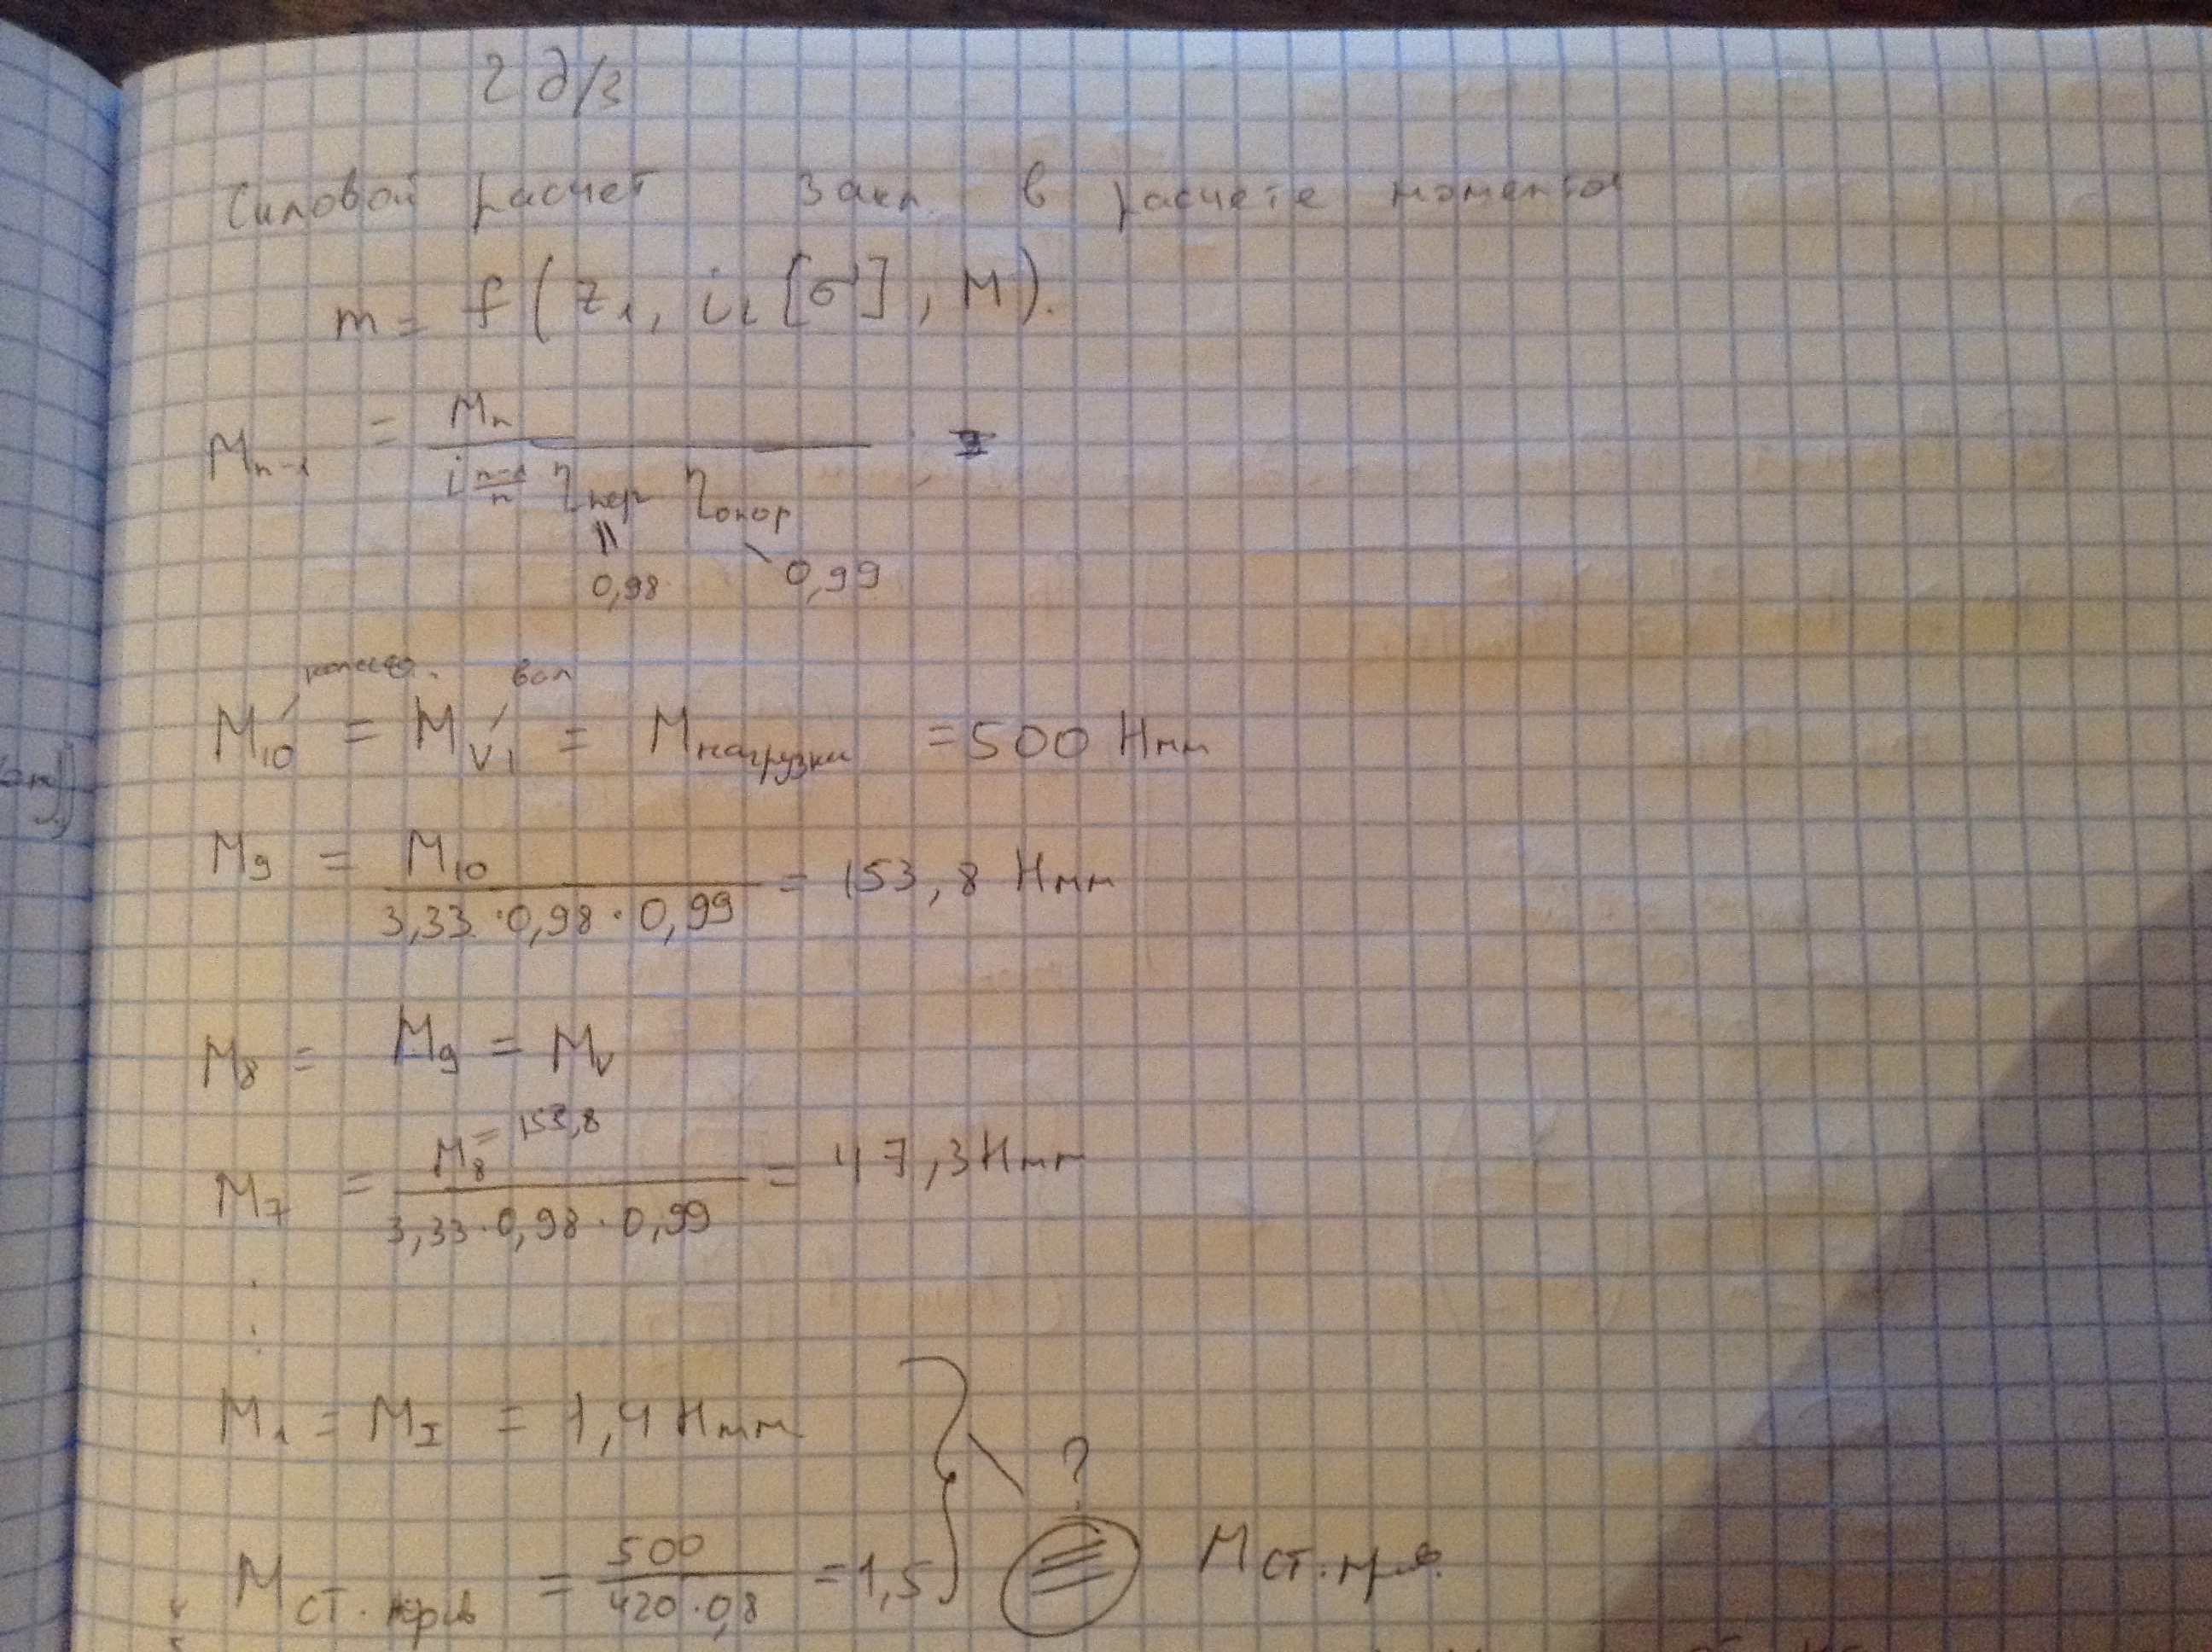 2 д/з
Силовой расчет закл. в расчете момента
m = f(z₁, i₁ [σ], M).
Mₙ₋₁ = Mₙ / (i n-1/n ηпер ηопор)
0,98 0,99
колесо. вал
M₁₀ = M_VI = Mнагрузки = 500 Нмм
M₉ = M₁₀ / (3,33 · 0,98 · 0,99) = 153,8 Нмм
M₈ = M₉ = M_V
M₇ = M₈ = 153,8 / (3,33 · 0,98 · 0,99) = 47,3 Нмм
M₁ = M_I = 1,4 Нмм
?
Mст. прив = 500 / (420 · 0,8) = 1,5 Mст. прив.